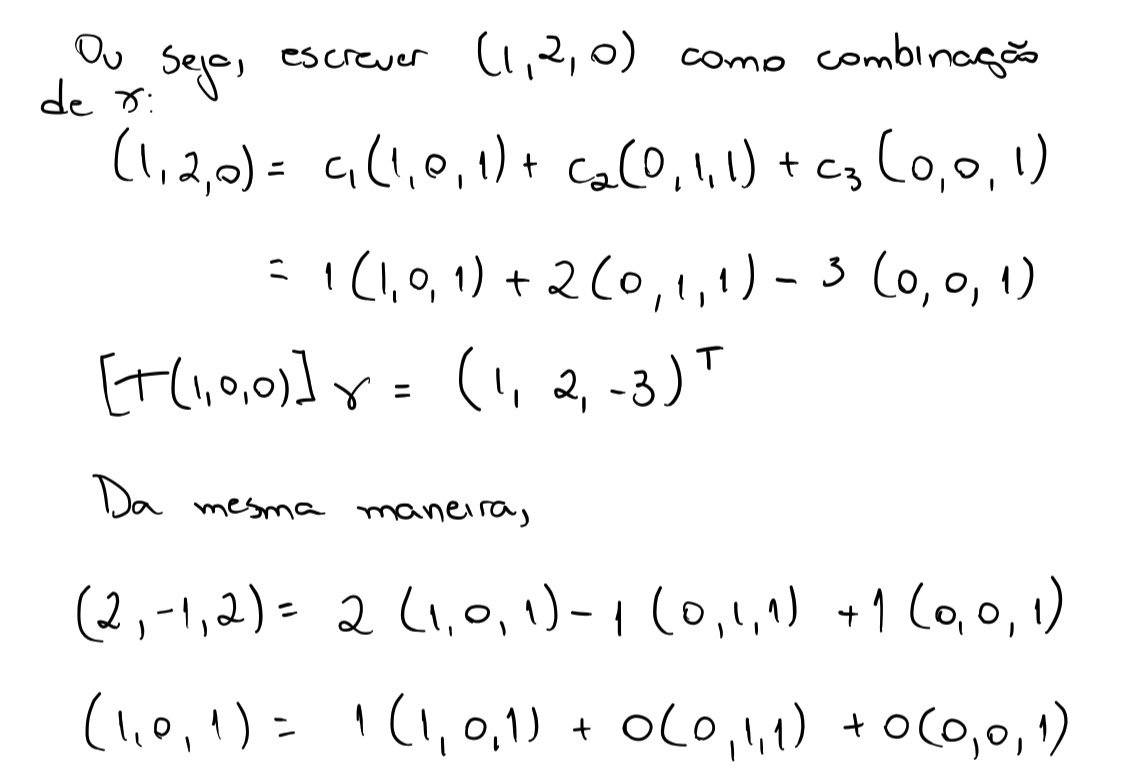 Ou seja, escrever (1,2,0) como combinação
de γ:
(1,2,0) = c₁(1,0,1) + c₂(0,1,1) + c₃(0,0,1)
= 1(1,0,1) + 2(0,1,1) - 3(0,0,1)
[T(1,0,0)]γ = (1, 2, -3)ᵀ
Da mesma maneira,
(2,-1,2) = 2(1,0,1) - 1(0,1,1) + 1(0,0,1)
(1,0,1) = 1(1,0,1) + 0(0,1,1) + 0(0,0,1)